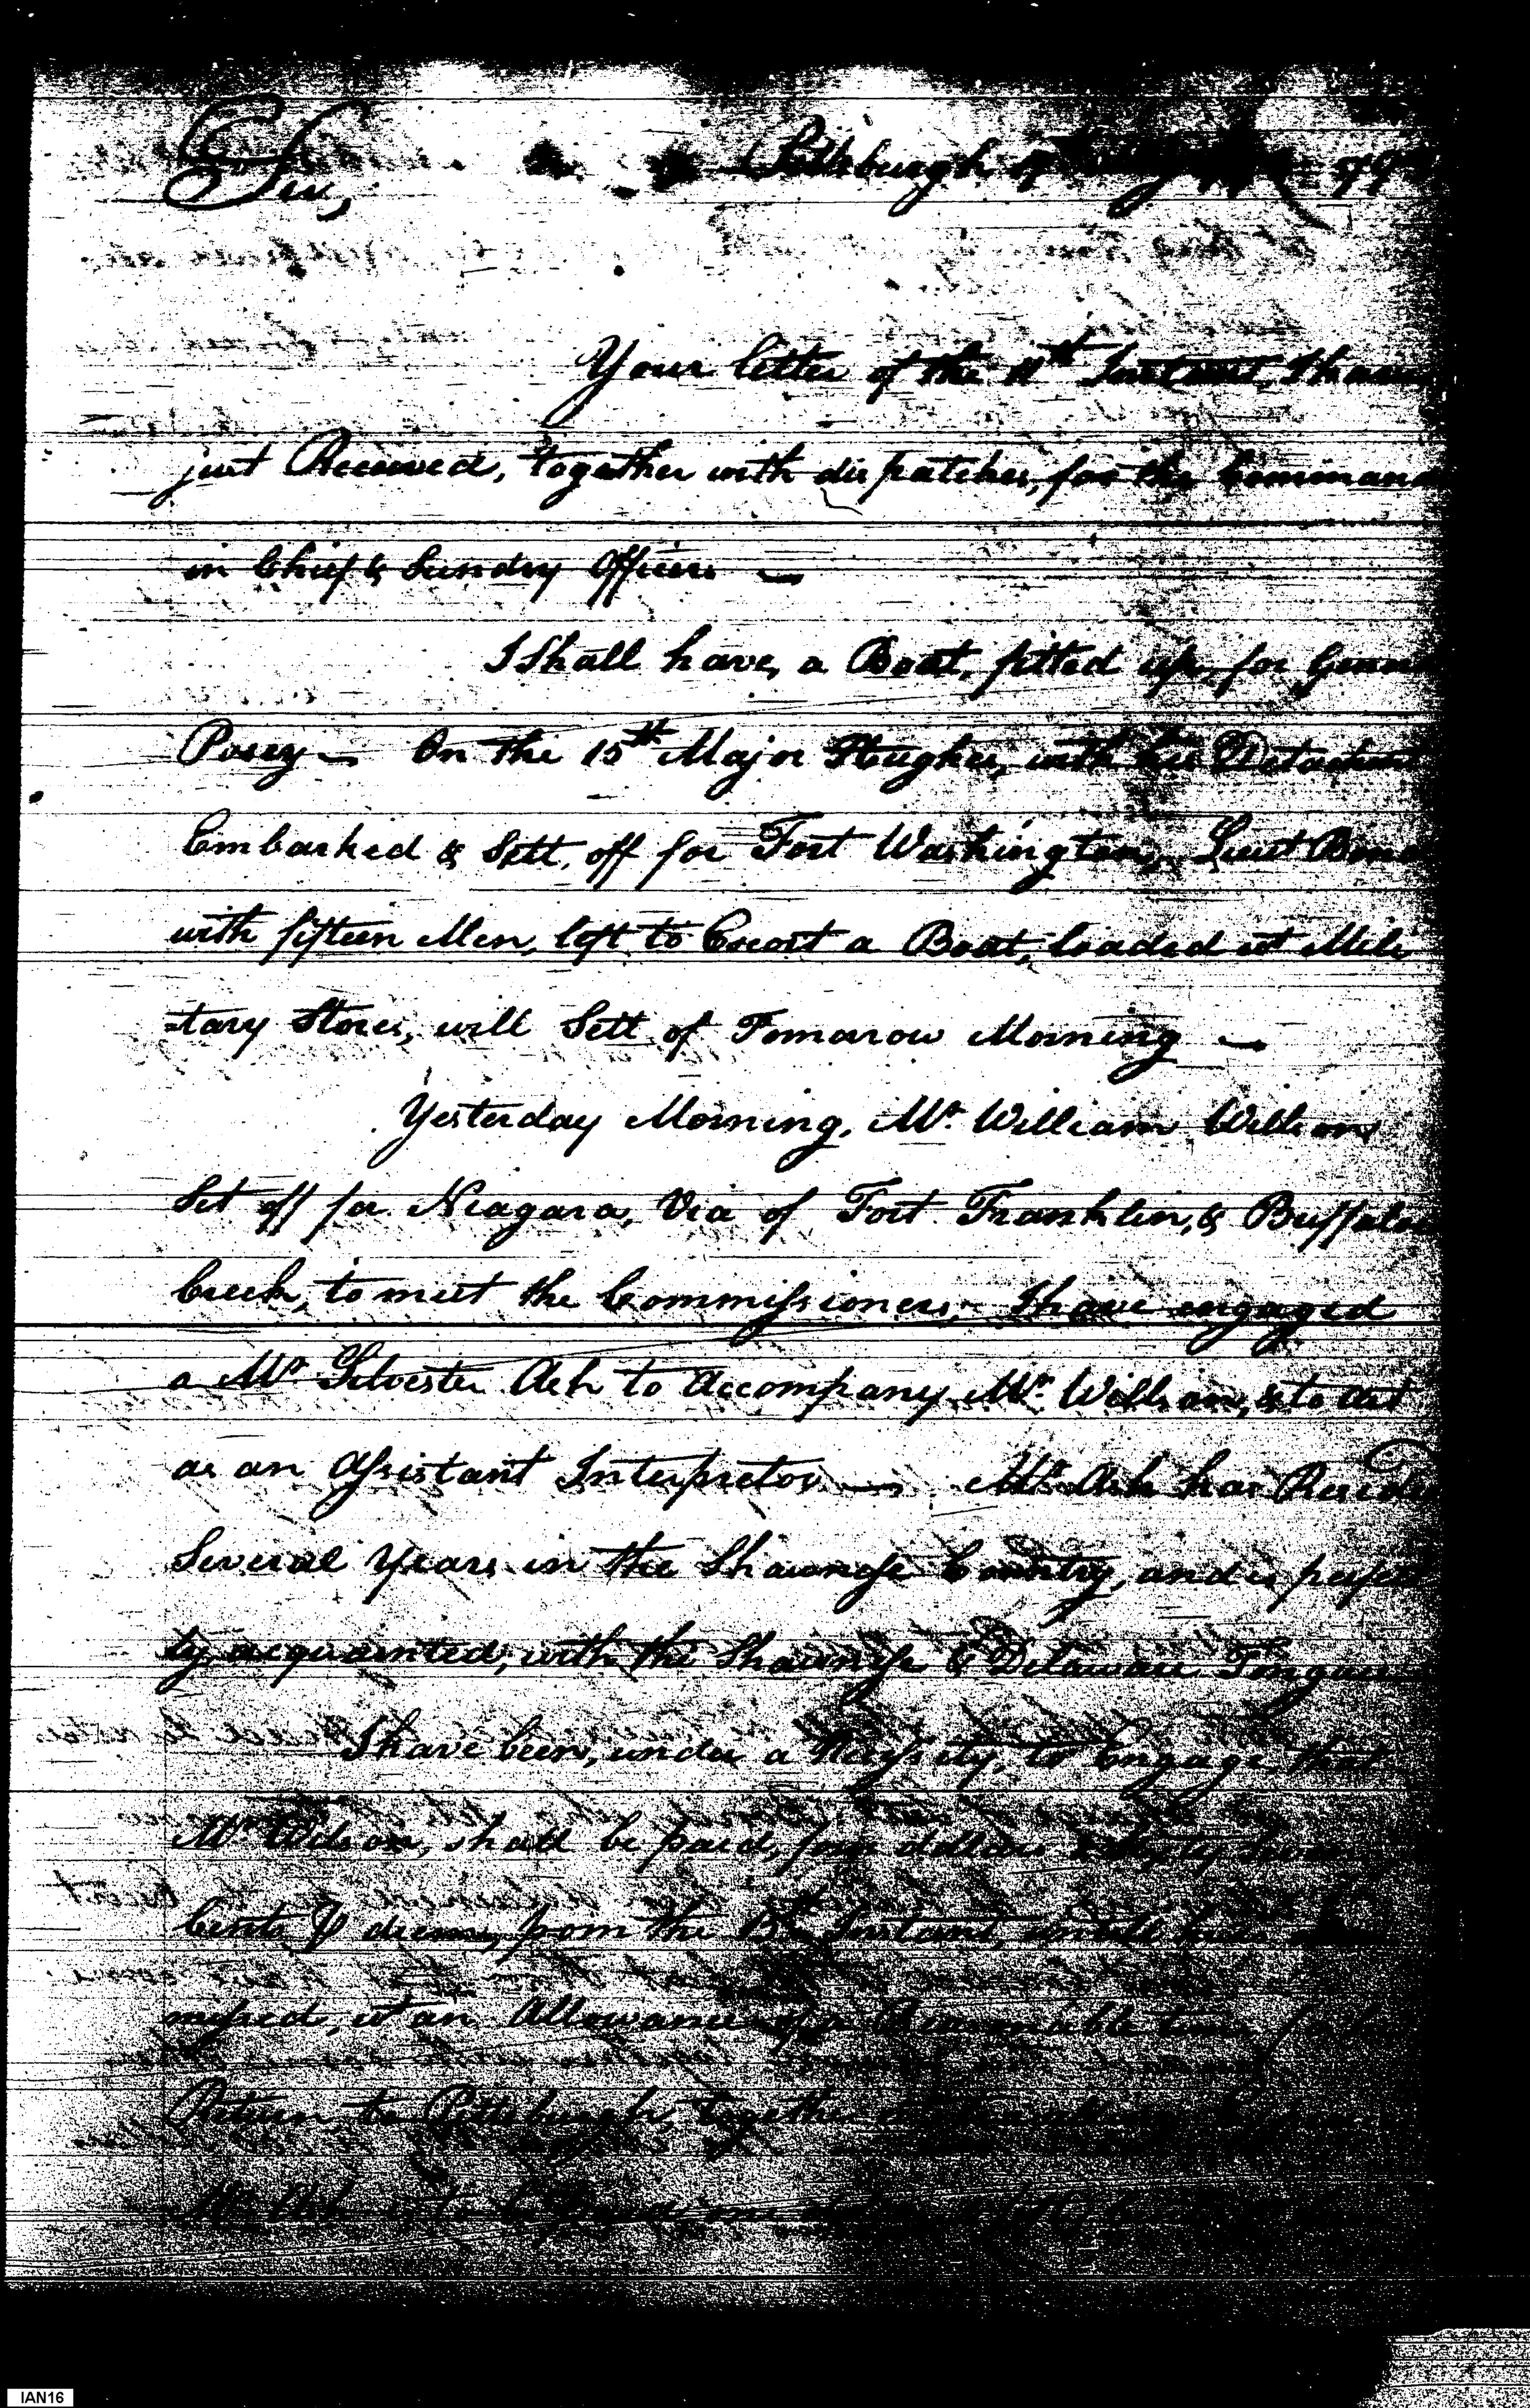 Sir,
Pittsburgh
Your letter of the 11th Instant, I have
just Received, together with dispatches, for the Command
in Chief & Sundry Officers —
I Shall have, a Boat, fitted up, for
Posey — On the 15th Major Hughes, with his Detachm
Embarked & Sett, off for Fort Washington, Lieut
with fifteen Men, left to Escort a Boat, loaded wt Mili
-tary Stores, will Sett of Tomarow Morning —
Yesterday Morning, Mr. William Willson
Set off for Niagara, Via of Fort Franklin, & Buffaloe
Creek, to meet the Commissioners — I have engaged
a Mr Silvester Ash to Accompany Mr. Willson, & to act
as an Assistant Interpretor — Mr. Ash has Reside
Several Years in the Shawnese Country, and is perfect
ly acquainted, with the Shawnese & Delaware Tongue
I have been, under a Nessisity, to Engage, that
Mr Wilson, shall be paid, four dollars &
Cents diem, from the Instant, untill
missed, wt an Allowance of a Reasonable time
Return to Pittsburgh, together
Mr Ash is to be
IAN16